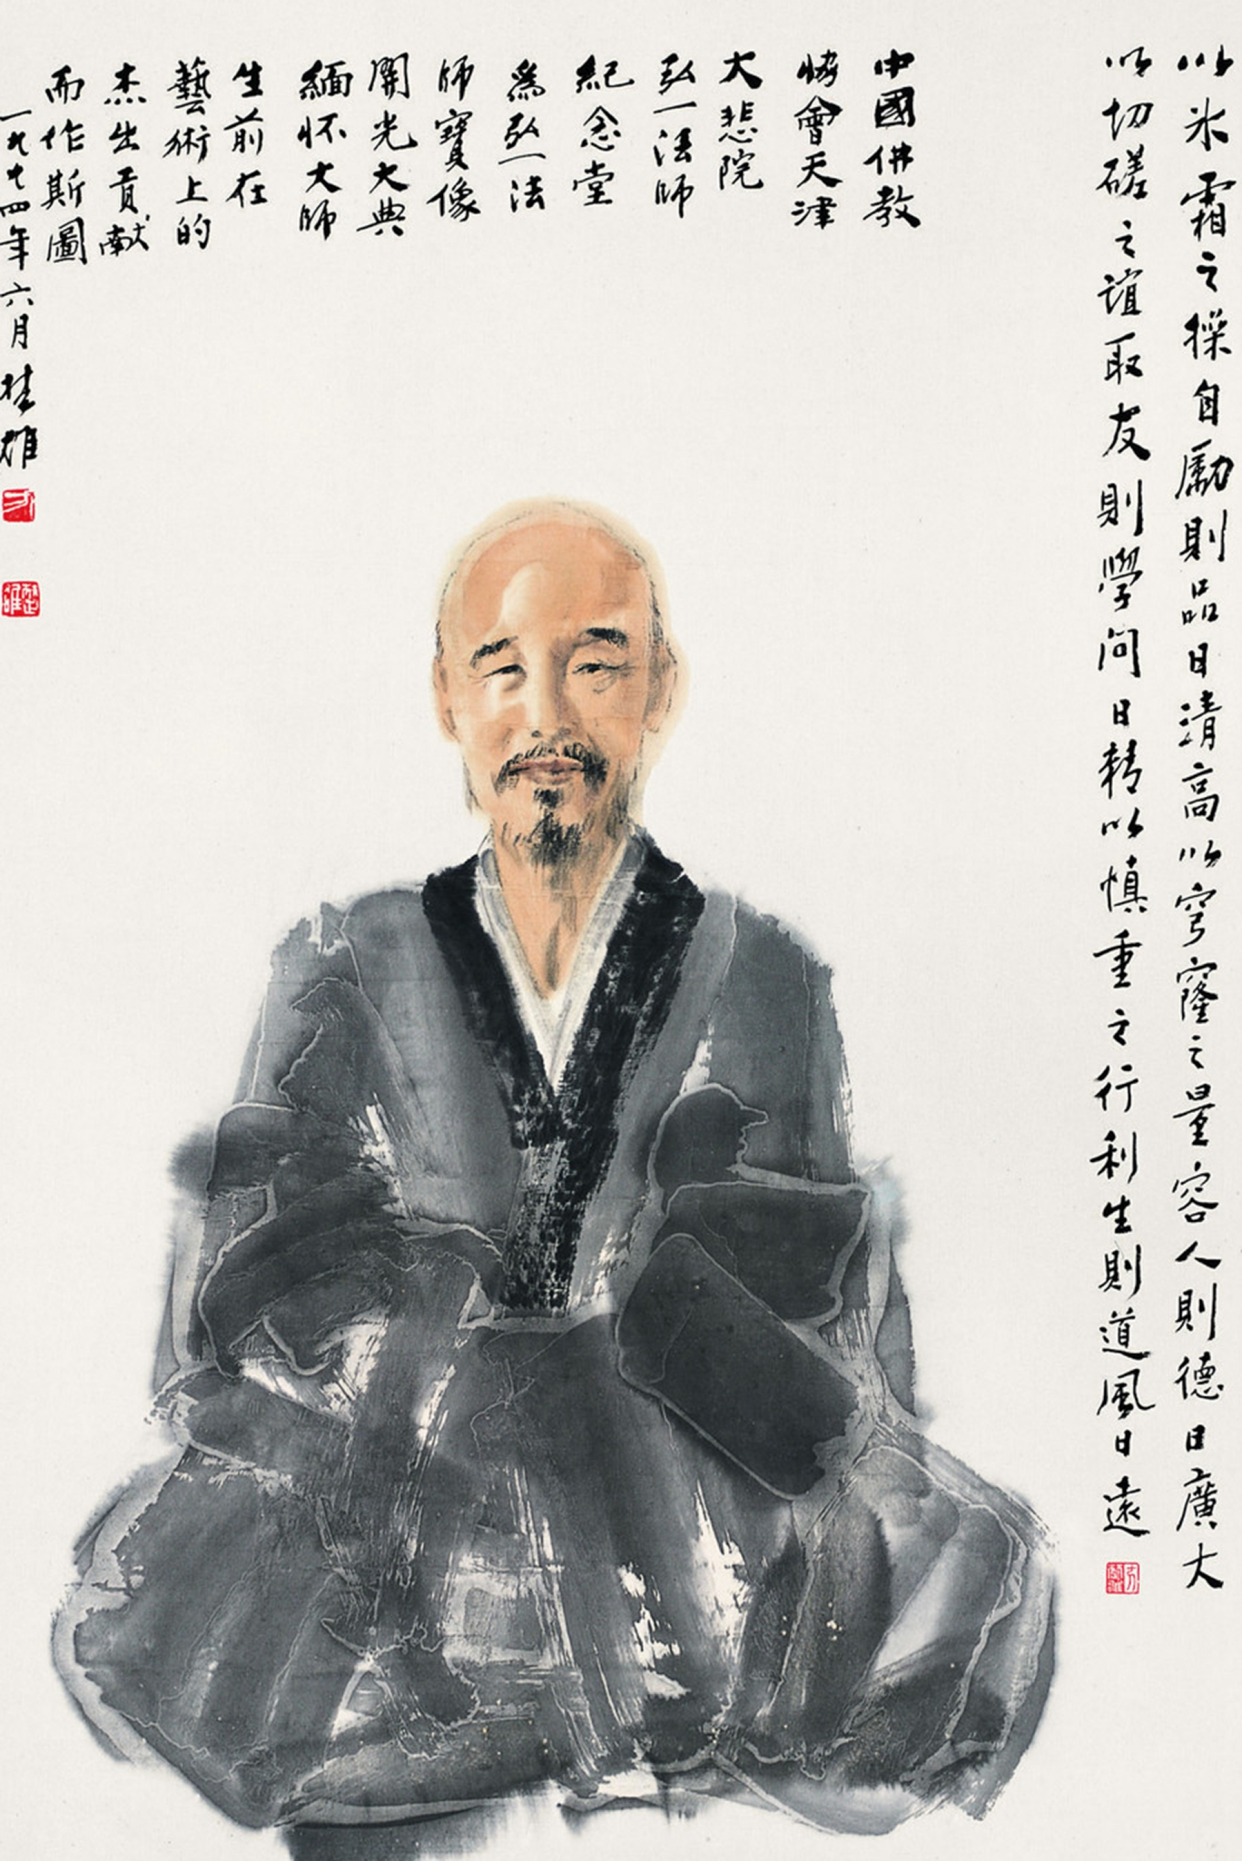 以氷霜之操自勵則品日清高以穹窿之量容人則德日廣大
以切磋之誼取友則學問日精以慎重之行利生則道風日遠
中國佛教
協會天津
大悲院
弘一法師
紀念堂
爲弘一法
師寶像
開光大典
緬怀大師
生前在
藝術上的
杰出貢献
而作斯圖
一九九四年六月雄